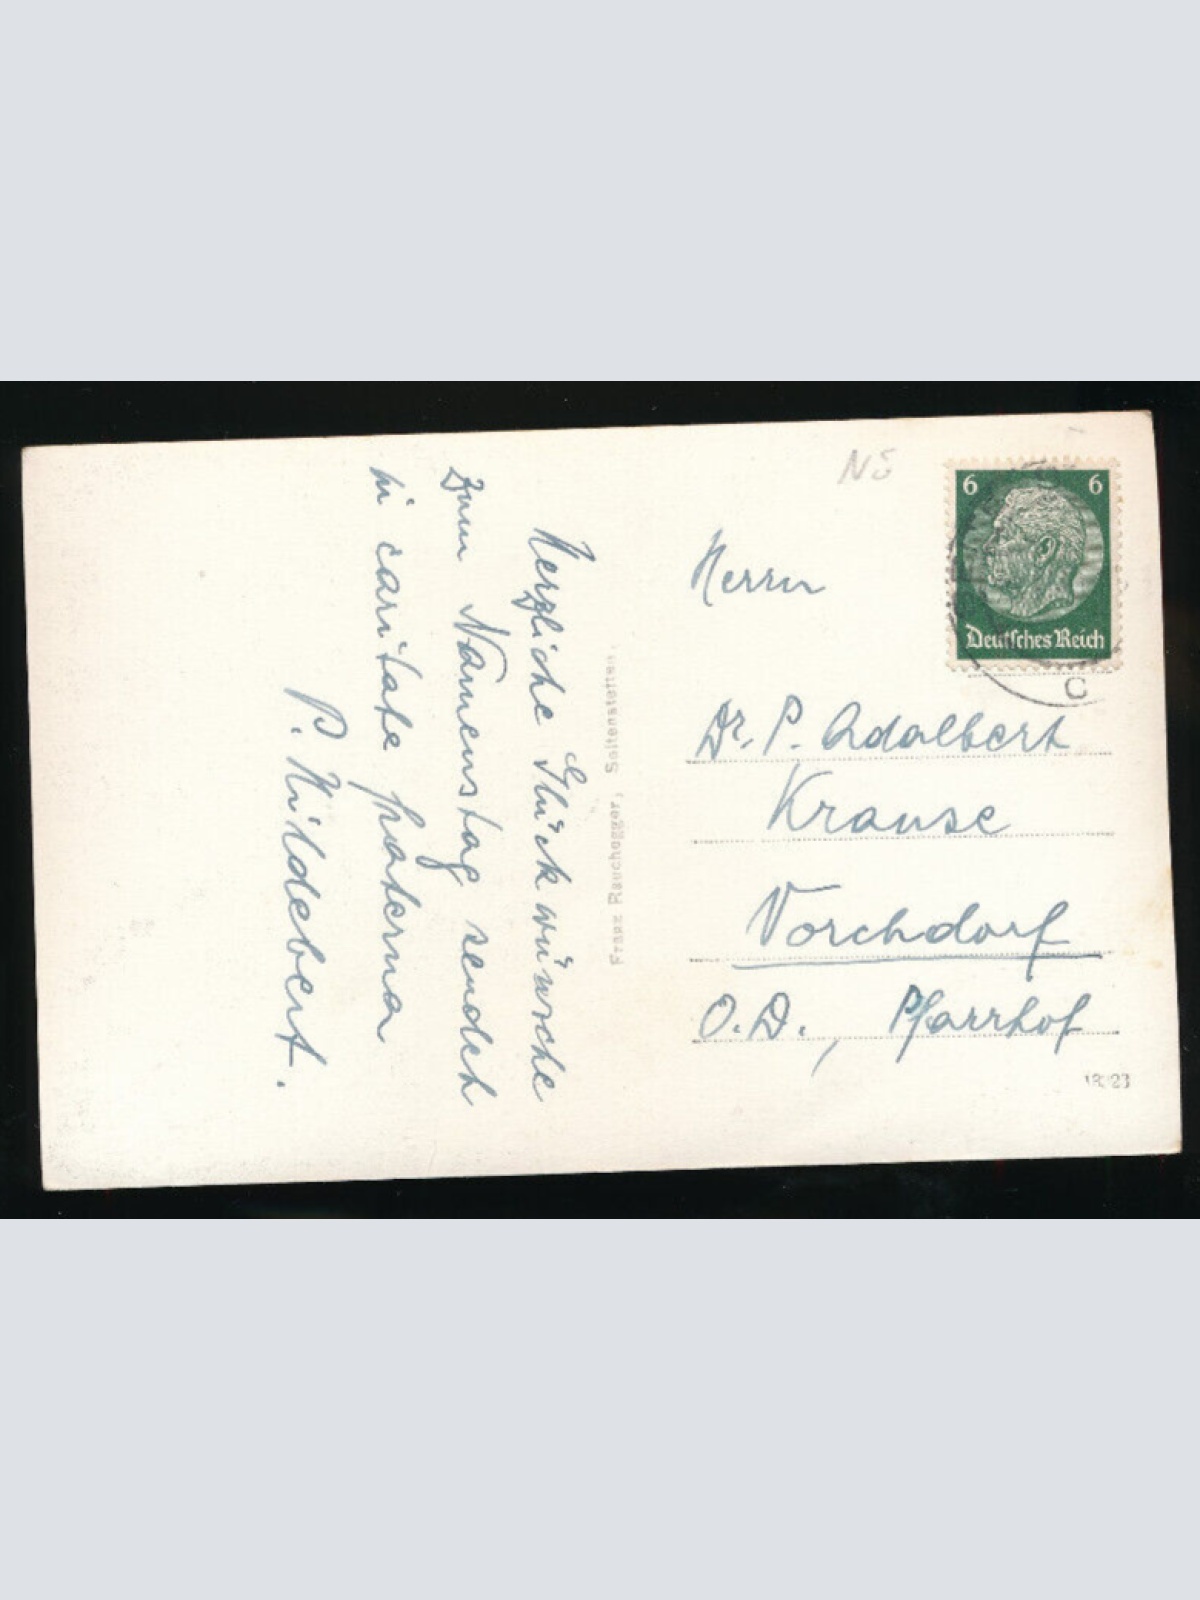 Herzliche Glückwünsche
zum Namenstag sendet
in caritate fraterna
P. Hildebert.
Franz Rauchegger, Seitenstetten.
NÖ
6 6
Deutsches Reich
C
Herrn
Dr. P. Adalbert
Krause
Vorchdorf
O.D., Pfarrhof